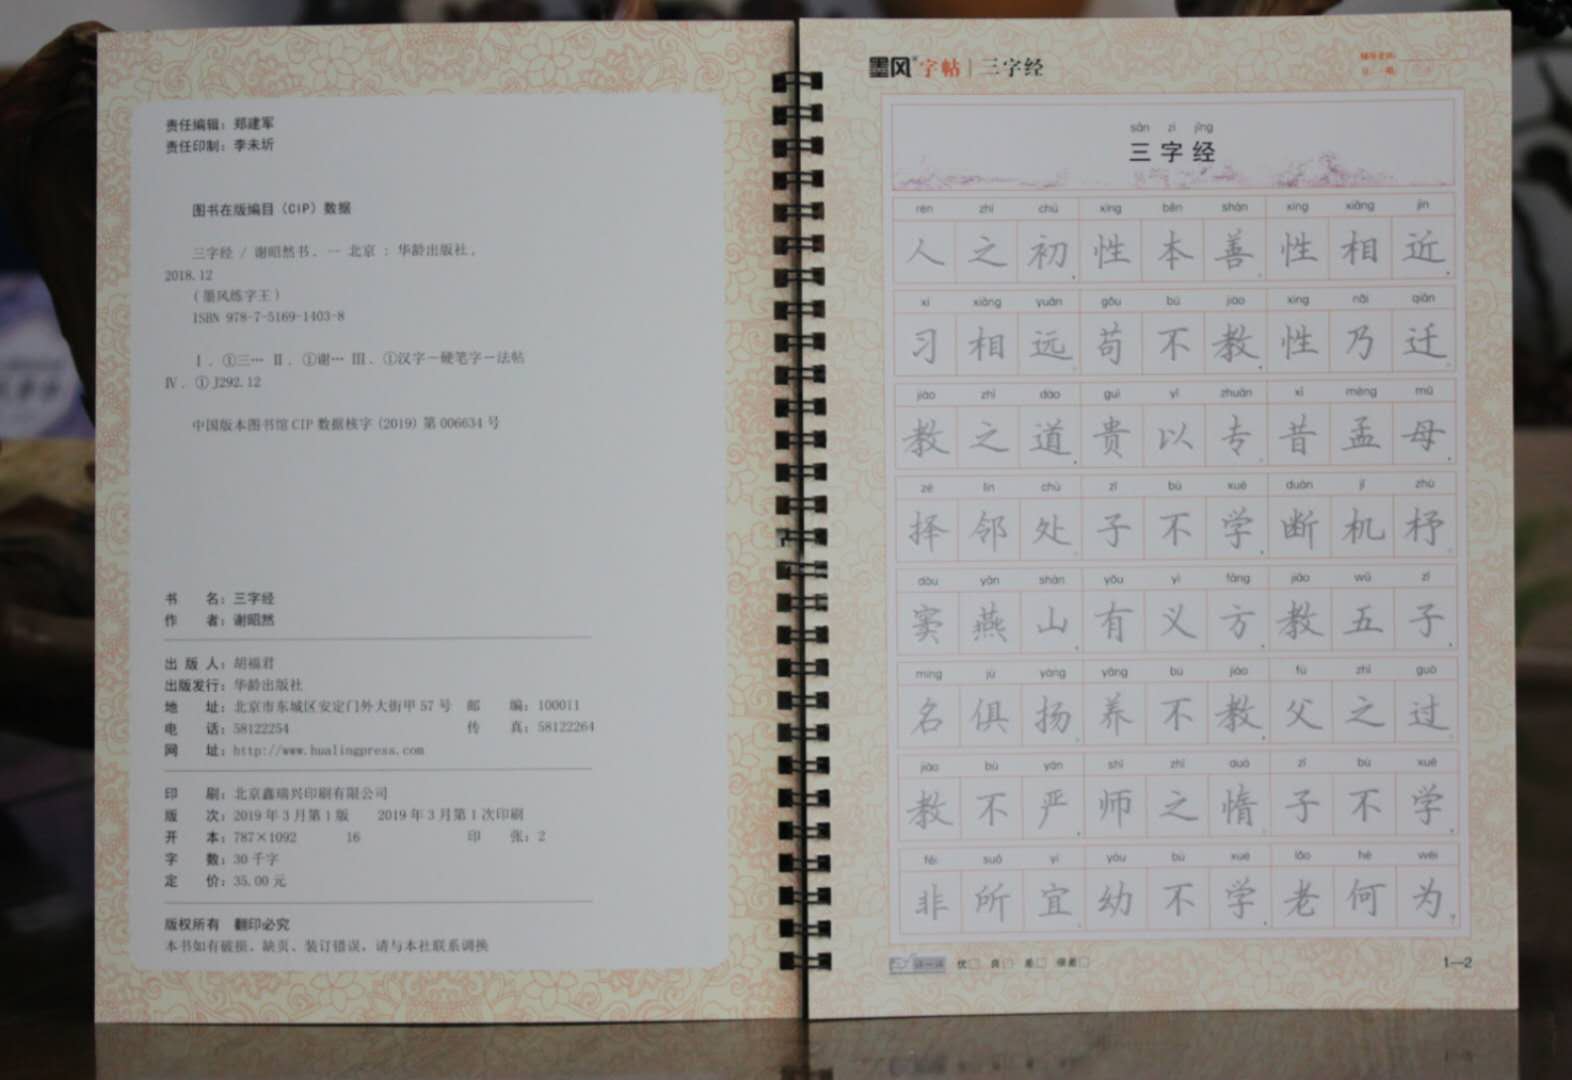 责任编辑：郑建军
责任印制：李未圻
图书在版编目（CIP）数据
三字经 / 谢昭然书. — 北京 : 华龄出版社,
2018.12
（墨风练字王）
ISBN 978-7-5169-1403-8
Ⅰ. ①三… Ⅱ. ①谢… Ⅲ. ①汉字－硬笔字－法帖
Ⅳ. ①J292.12
中国版本图书馆CIP数据核字（2019）第006634号
书　　名：三字经
作　　者：谢昭然
出 版 人：胡福君
出版发行：华龄出版社
地　　址：北京市东城区安定门外大街甲57号　邮　　编：100011
电　　话：58122254　传　　真：58122264
网　　址：http://www.hualingpress.com
印　　刷：北京鑫瑞兴印刷有限公司
版　　次：2019年3月第1版　2019年3月第1次印刷
开　　本：787×1092　16　印　　张：2
字　　数：30千字
定　　价：35.00元
版权所有　翻印必究
本书如有破损、缺页、装订错误，请与本社联系调换
墨风字帖｜三字经
sān zì jīng
三字经
rén zhī chū xìng běn shàn xìng xiāng jìn
人之初，性本善。性相近，
xí xiāng yuǎn gǒu bú jiào xìng nǎi qiān
习相远。苟不教，性乃迁。
jiào zhī dào guì yǐ zhuān xī mèng mǔ
教之道，贵以专。昔孟母，
zé lín chù zǐ bù xué duàn jī zhù
择邻处。子不学，断机杼。
dòu yān shān yǒu yì fāng jiào wǔ zǐ
窦燕山，有义方。教五子，
míng jù yáng yǎng bú jiào fù zhī guò
名俱扬。养不教，父之过。
jiào bù yán shī zhī duò zǐ bù xué
教不严，师之惰。子不学，
fēi suǒ yí yòu bù xué lǎo hé wéi
非所宜。幼不学，老何为？
优 良 差
1—2